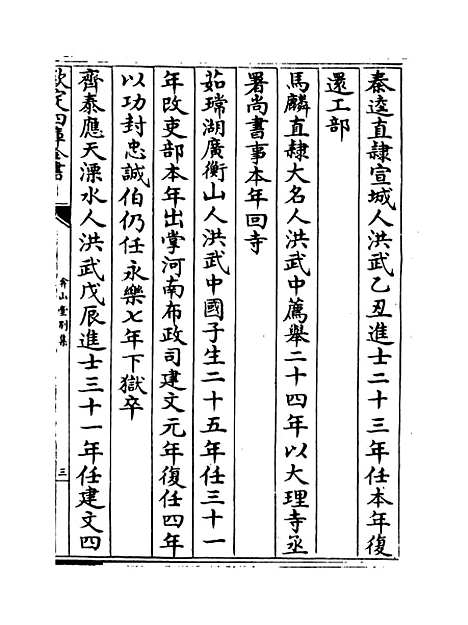 秦逵直隸宣城人洪武乙丑進士二十三年任本年復
還工部
馬麟直隸大名人洪武中薦舉二十四年以大理寺丞
署尚書事本年回寺
茹瑺湖廣衡山人洪武中國子生二十五年任三十一
年改吏部本年出掌河南布政司建文元年復任四年
以功封忠誠伯仍任永樂七年下獄卒
齊泰應天溧水人洪武戊辰進士三十一年任建文四
欽定四庫全書
弇山堂別集
三